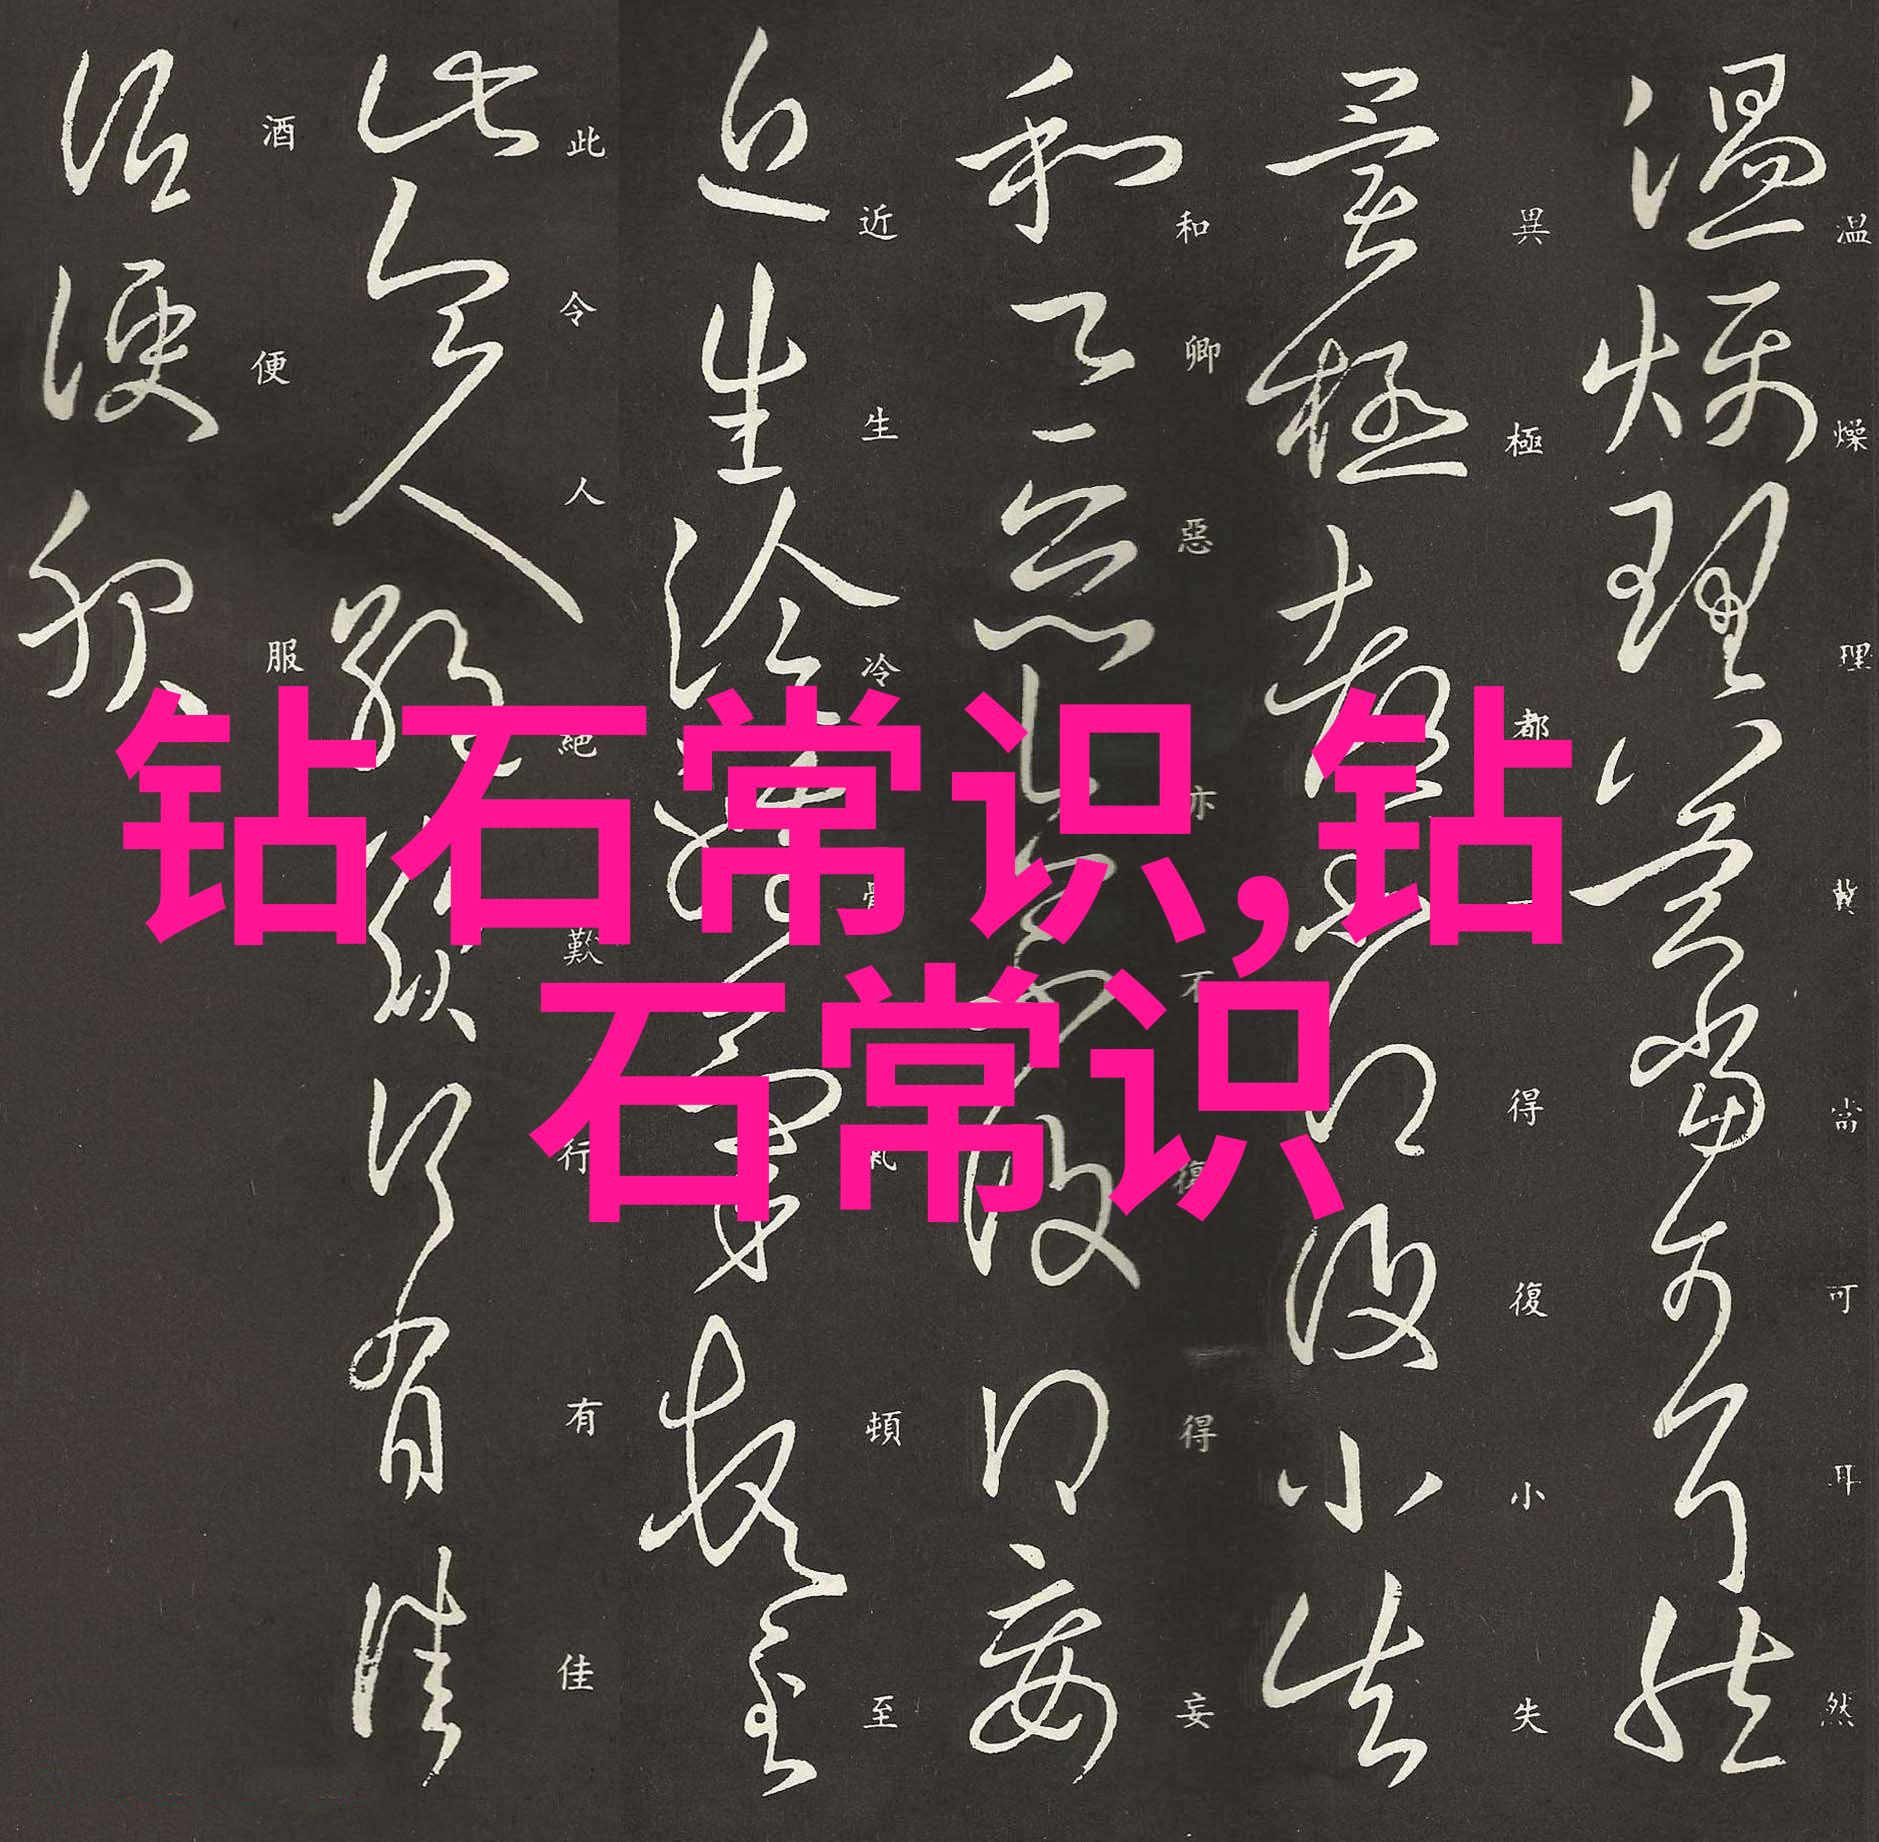 钻石常识,钻
石常识
温燥理冀當可耳然
異極都得復小失
和卿惡亦不復得妄
近生冷氣頓至
此令人絕歎行有佳
酒便服